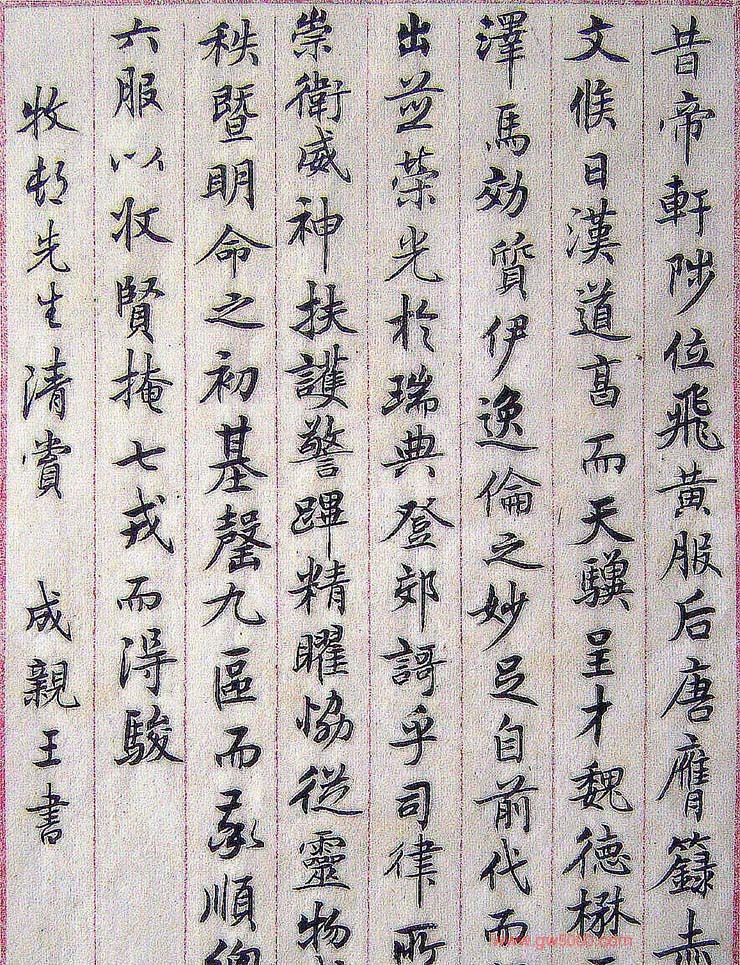 昔帝軒陟位飛黃服后唐膺籙赤
文候日漢道高而天驥呈才魏德楙
澤馬効質伊逸倫之妙足自前代而
出並榮光於瑞典登郊謌乎司律所
崇衛威神扶護警蹕精曜恊從靈物
秩暨明命之初基罄九區而率順總
六服以收賢掩七戎而得駿
牧邨先生清賞 成親王書